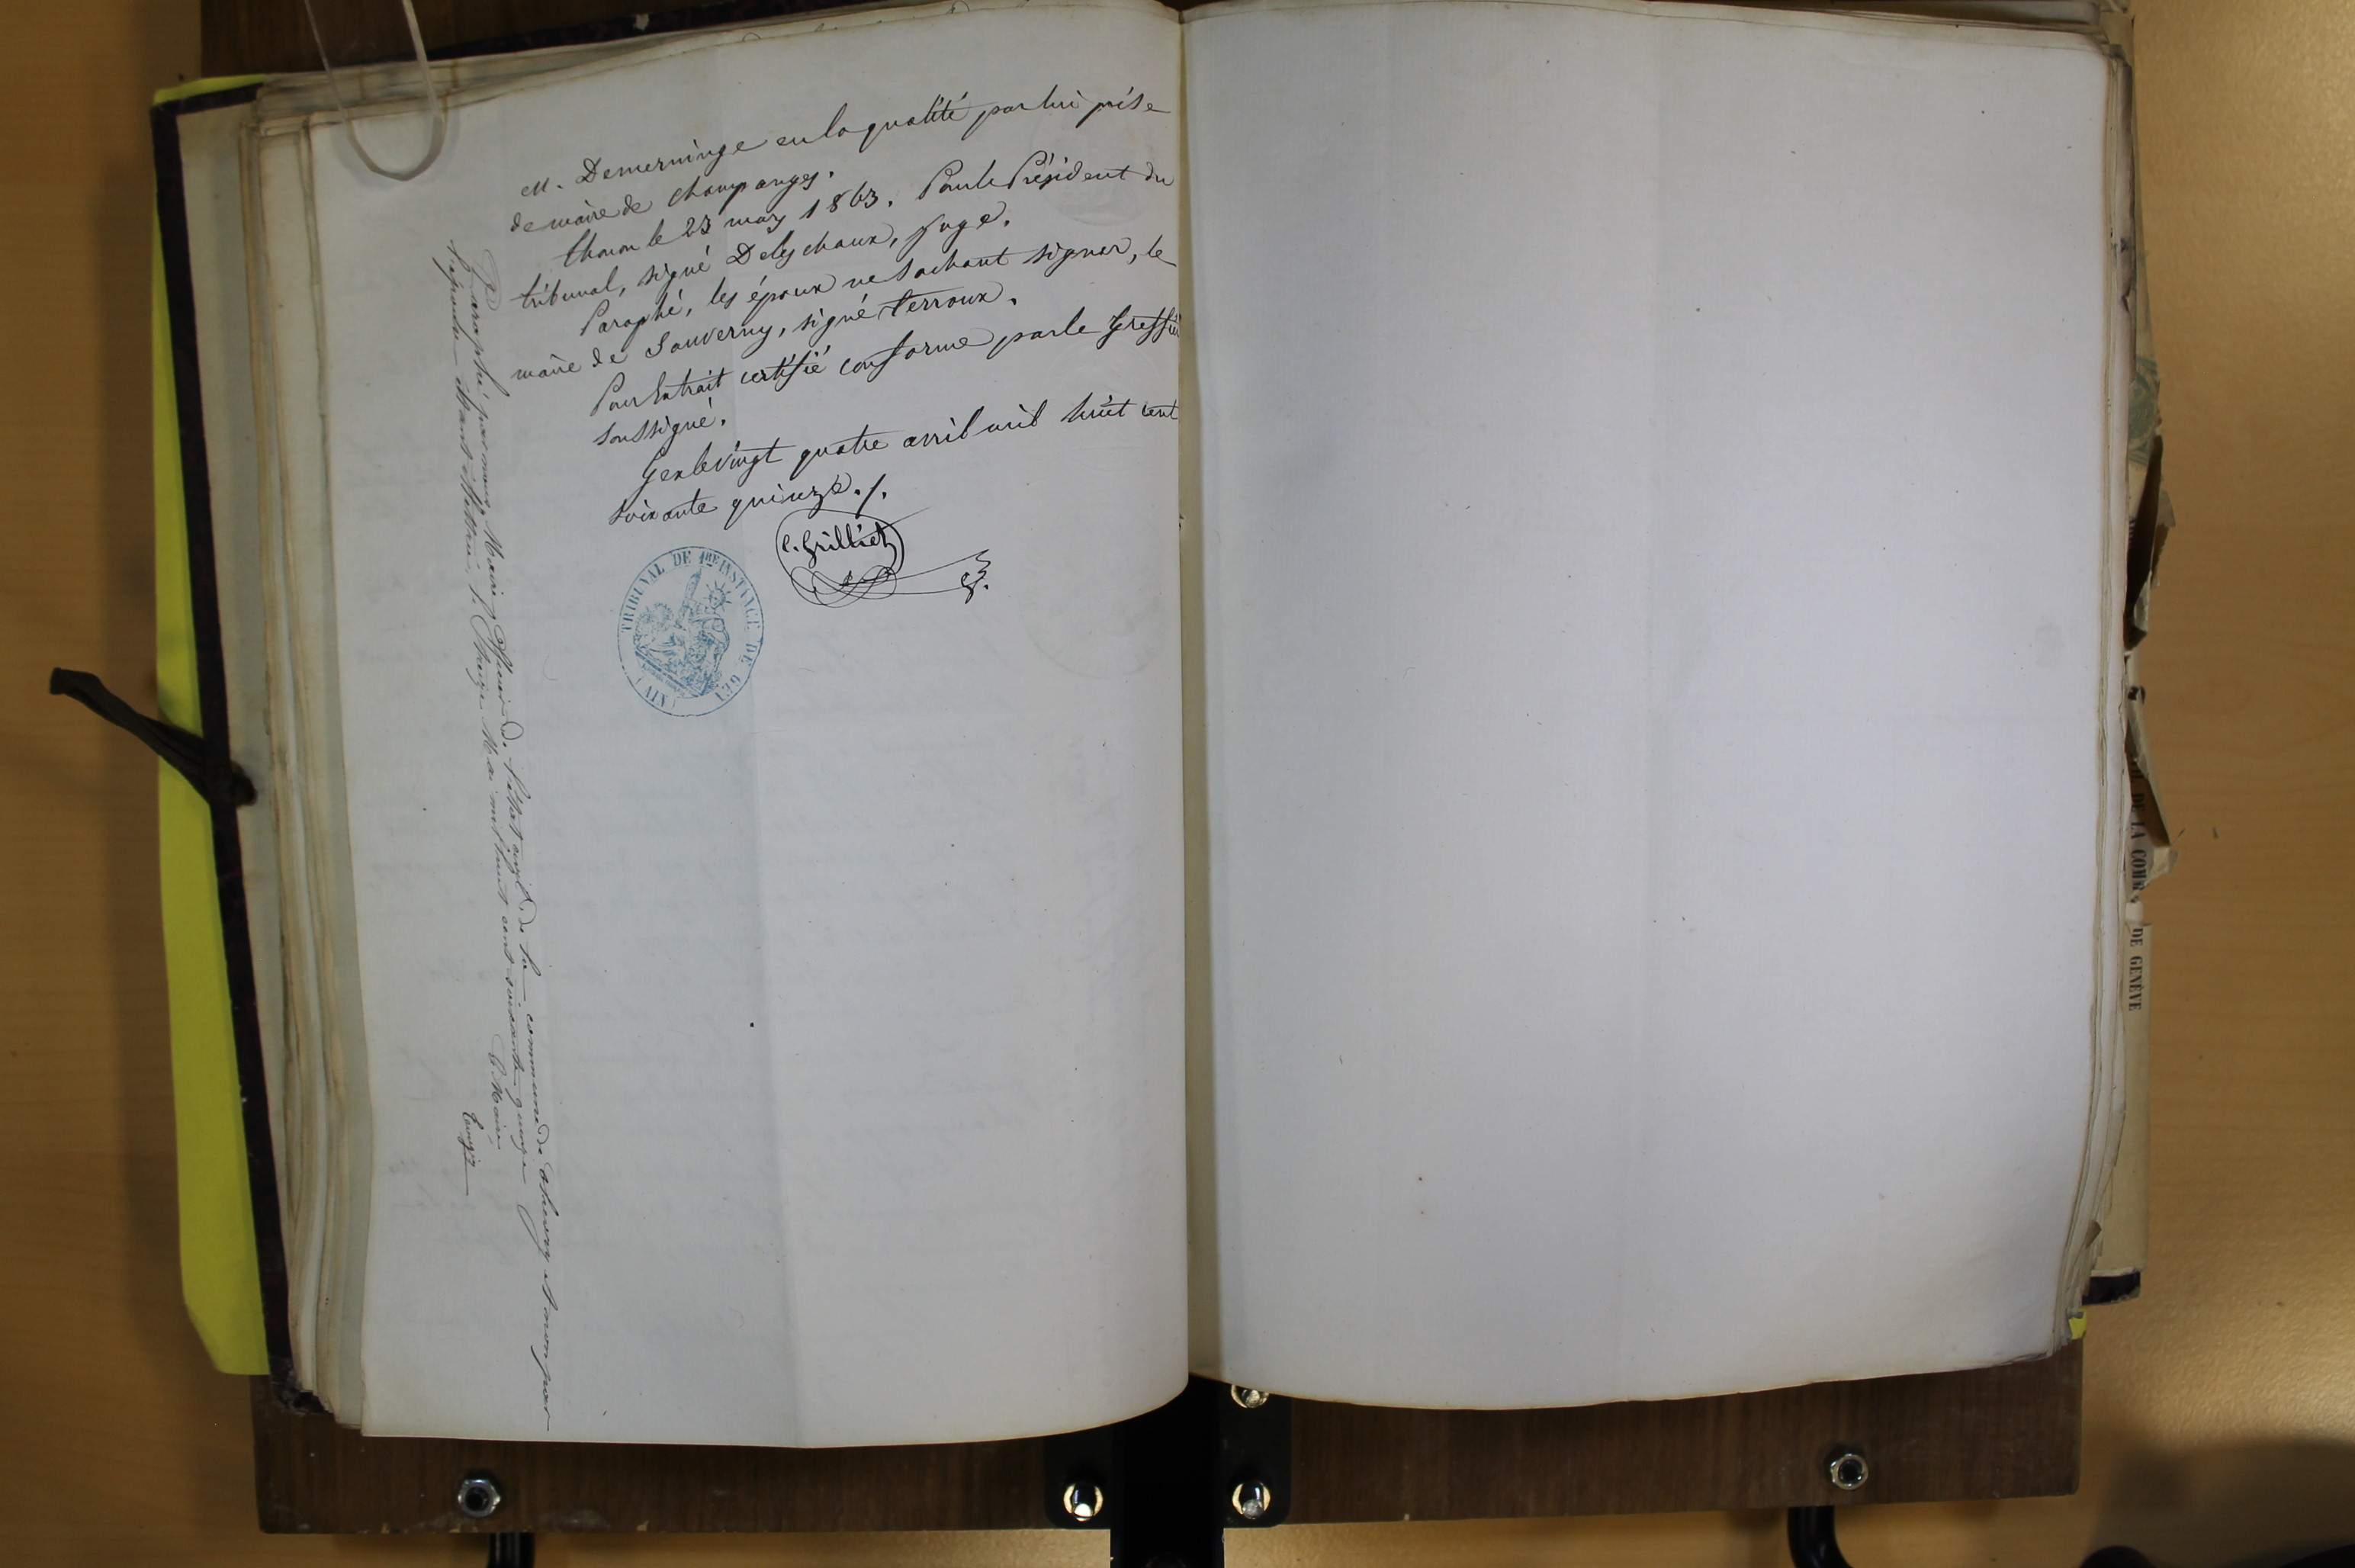 M. Demerninge en la qualité par lui prise
de maire de champanges.
thonon le 23 mars 1863. Pour le Président du
tribunal, signé Deleschaux, juge.
Paraphé, les époux ne sachant signer, le
maire de Sauverny, signé terroux.
Pour Extrait certifié conforme par le Greffier
soussigné.
Gex le vingt quatre avril mil huit cent
soixante quinze ./.
C. Grilliet
TRIBUNAL DE 1RE INSTANCE DE GEX
(AIN)
Paraphé par nous Maire, officier de l'état civil de la commune de et non par
l'épouse étant illettrée, Mai mil huit cent soixante quinze
Le Maire
DE LA COMM
DE GENÈVE